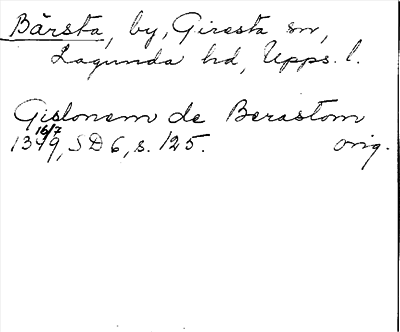 Bärsta, by, Giresta sn,
Lagunda hd, Upps. l.
Gislonem de Berastom
16/7
1349, SD 6, s. 125. orig.